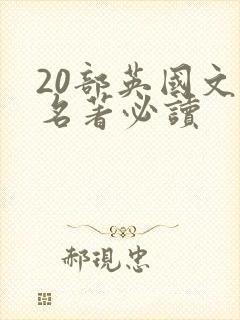 20部英國文
名著必讀
郝現忠